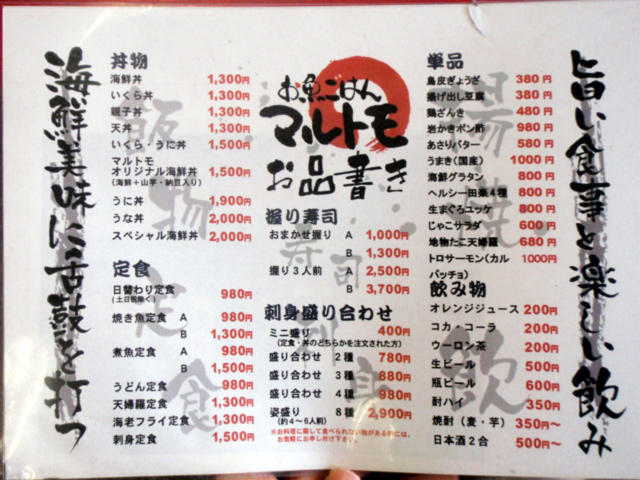 海鮮美味に舌鼓を打つ
丼物
海鮮丼 1,300円
いくら丼 1,300円
親子丼 1,300円
天丼 1,300円
いくら・うに丼 1,500円
マルトモ
オリジナル海鮮丼 1,500円
(海鮮+山芋・納豆入り)
うに丼 1,900円
うな丼 2,000円
スペシャル海鮮丼 2,000円
定食
日替わり定食 980円
(土日祝除く)
焼き魚定食 A 980円
B 1,300円
煮魚定食 A 980円
B 1,500円
うどん定食 980円
天婦羅定食 1,300円
海老フライ定食 1,300円
刺身定食 1,500円
お魚ごはん
マルトモ
お品書き
握り寿司
おまかせ握り A 1,000円
B 1,300円
握り3人前 A 2,500円
B 3,700円
刺身盛り合わせ
ミニ盛り 400円
(定食・丼のどちらかを注文された方)
盛り合わせ 2種 780円
盛り合わせ 3種 880円
盛り合わせ 4種 980円
姿盛り 8種 2,900円
(約4～6人前)
※お料理に関して食べられない物がある時には、
お気軽にお申し付け下さい。
単品
鳥皮ぎょうざ 380円
揚げ出し豆腐 380円
鶏ざんき 480円
岩かきポン酢 980円
あさりバター 580円
うまき(国産) 1000円
海鮮グラタン 800円
ヘルシー田楽4種 800円
生まぐろユッケ 800円
じゃこサラダ 600円
地物たこ天婦羅 680円
トロサーモン(カル 1000円
パッチョ)
飲み物
オレンジジュース 200円
コカ・コーラ 200円
ウーロン茶 200円
生ビール 500円
瓶ビール 600円
酎ハイ 350円
焼酎(麦・芋) 350円～
日本酒2合 500円～
旨い食事と楽しい飲み
飯物
定食
寿司
刺身
揚焼
飲